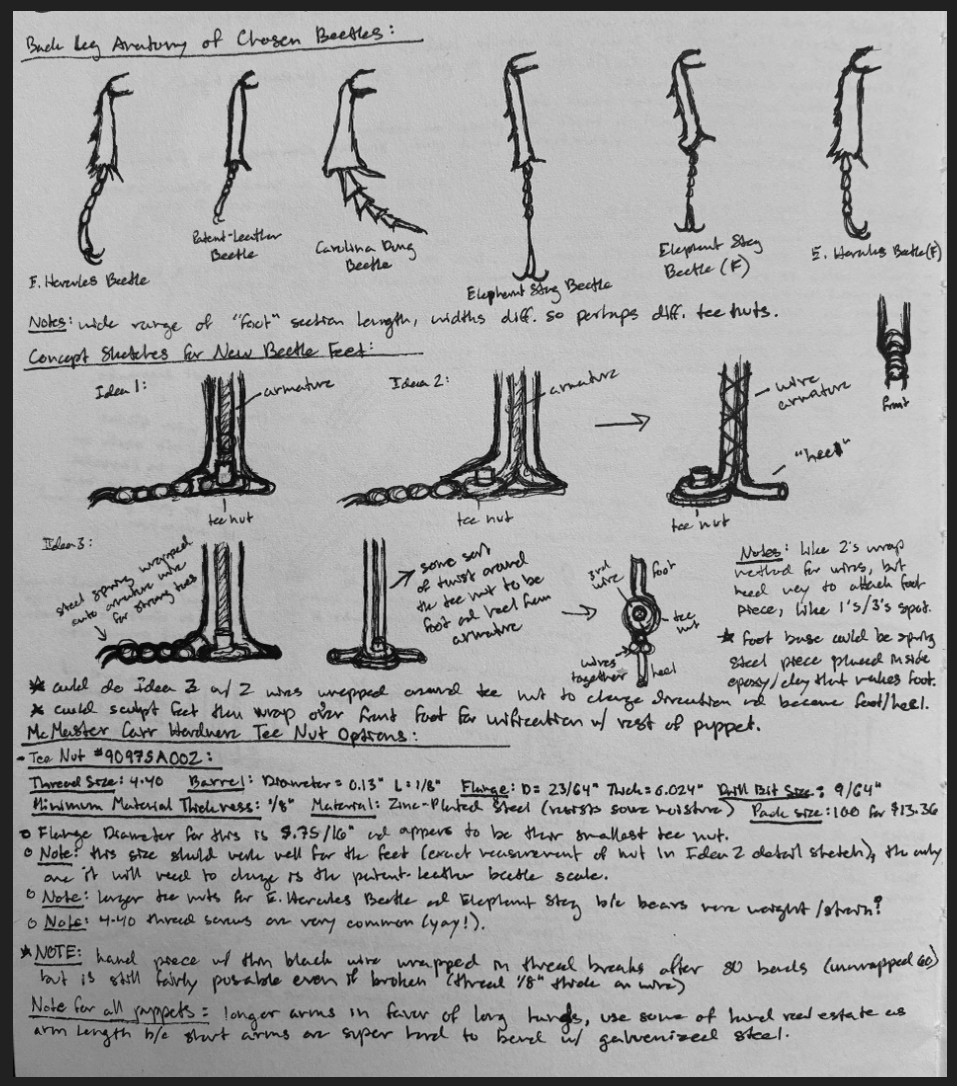 Back Leg Anatomy of Chosen Beetles:
E. Hercules Beetle
Patent-Leather
Beetle
Carolina Dung
Beetle
Elephant Stag Beetle
Elephant Stag
Beetle (F)
E. Hercules Beetle (F)
Notes: wide range of "foot" section length, widths diff. so perhaps diff. tee nuts.
Concept Sketches for New Beetle Feet:
front
Idea 1:
armature
tee nut
Idea 2:
armature
tee nut
wire
armature
"heel"
tee nut
Idea 3:
steel spring wrapped
onto armature wire
for strong toes
some sort
of twist around
the tee nut to be
foot and heel from
armature
3rd
wire
foot
tee
nut
wires
together
heel
Notes: Like 2's wrap
method for wires, but
need way to attach foot
piece, like 1's/3's spot.
* foot base could be spring
steel piece placed inside
epoxy/clay that makes foot.
* could do Idea 3 w/ 2 wires wrapped around tee nut to change direction and become foot/heel.
* could sculpt feet then wrap over front foot for unification w/ rest of puppet.
McMaster Carr Hardware Tee Nut Options:
- Tee Nut #90975A002:
Thread Size: 4-40 Barrel: Diameter = 0.13" L = 1/8" Flange: D = 23/64" Thick = 0.024" Drill Bit Size: 9/64"
Minimum Material Thickness: 1/8" Material: Zinc-Plated Steel (resists some moisture) Pack size: 100 for $13.36
o Flange Diameter for this is 5.75/16" and appears to be their smallest tee nut.
o Note: this size should work well for the feet (exact measurement of nut in Idea 2 detail sketch), the only
one it will need to change is the patent-leather beetle scale.
o Note: larger tee nuts for E. Hercules Beetle and Elephant Stag b/c bears more weight/strain?
o Note: 4-40 thread screws are very common (yay!).
* NOTE: hand piece w/ thin black wire wrapped in thread breaks after 80 bends (unwrapped 60)
but is still fairly posable even if broken (thread 1/8" thick on wire)
Note for all puppets: longer arms in favor of long hands, use some of hand real estate as
arm length b/c short arms are super hard to bend w/ galvanized steel.